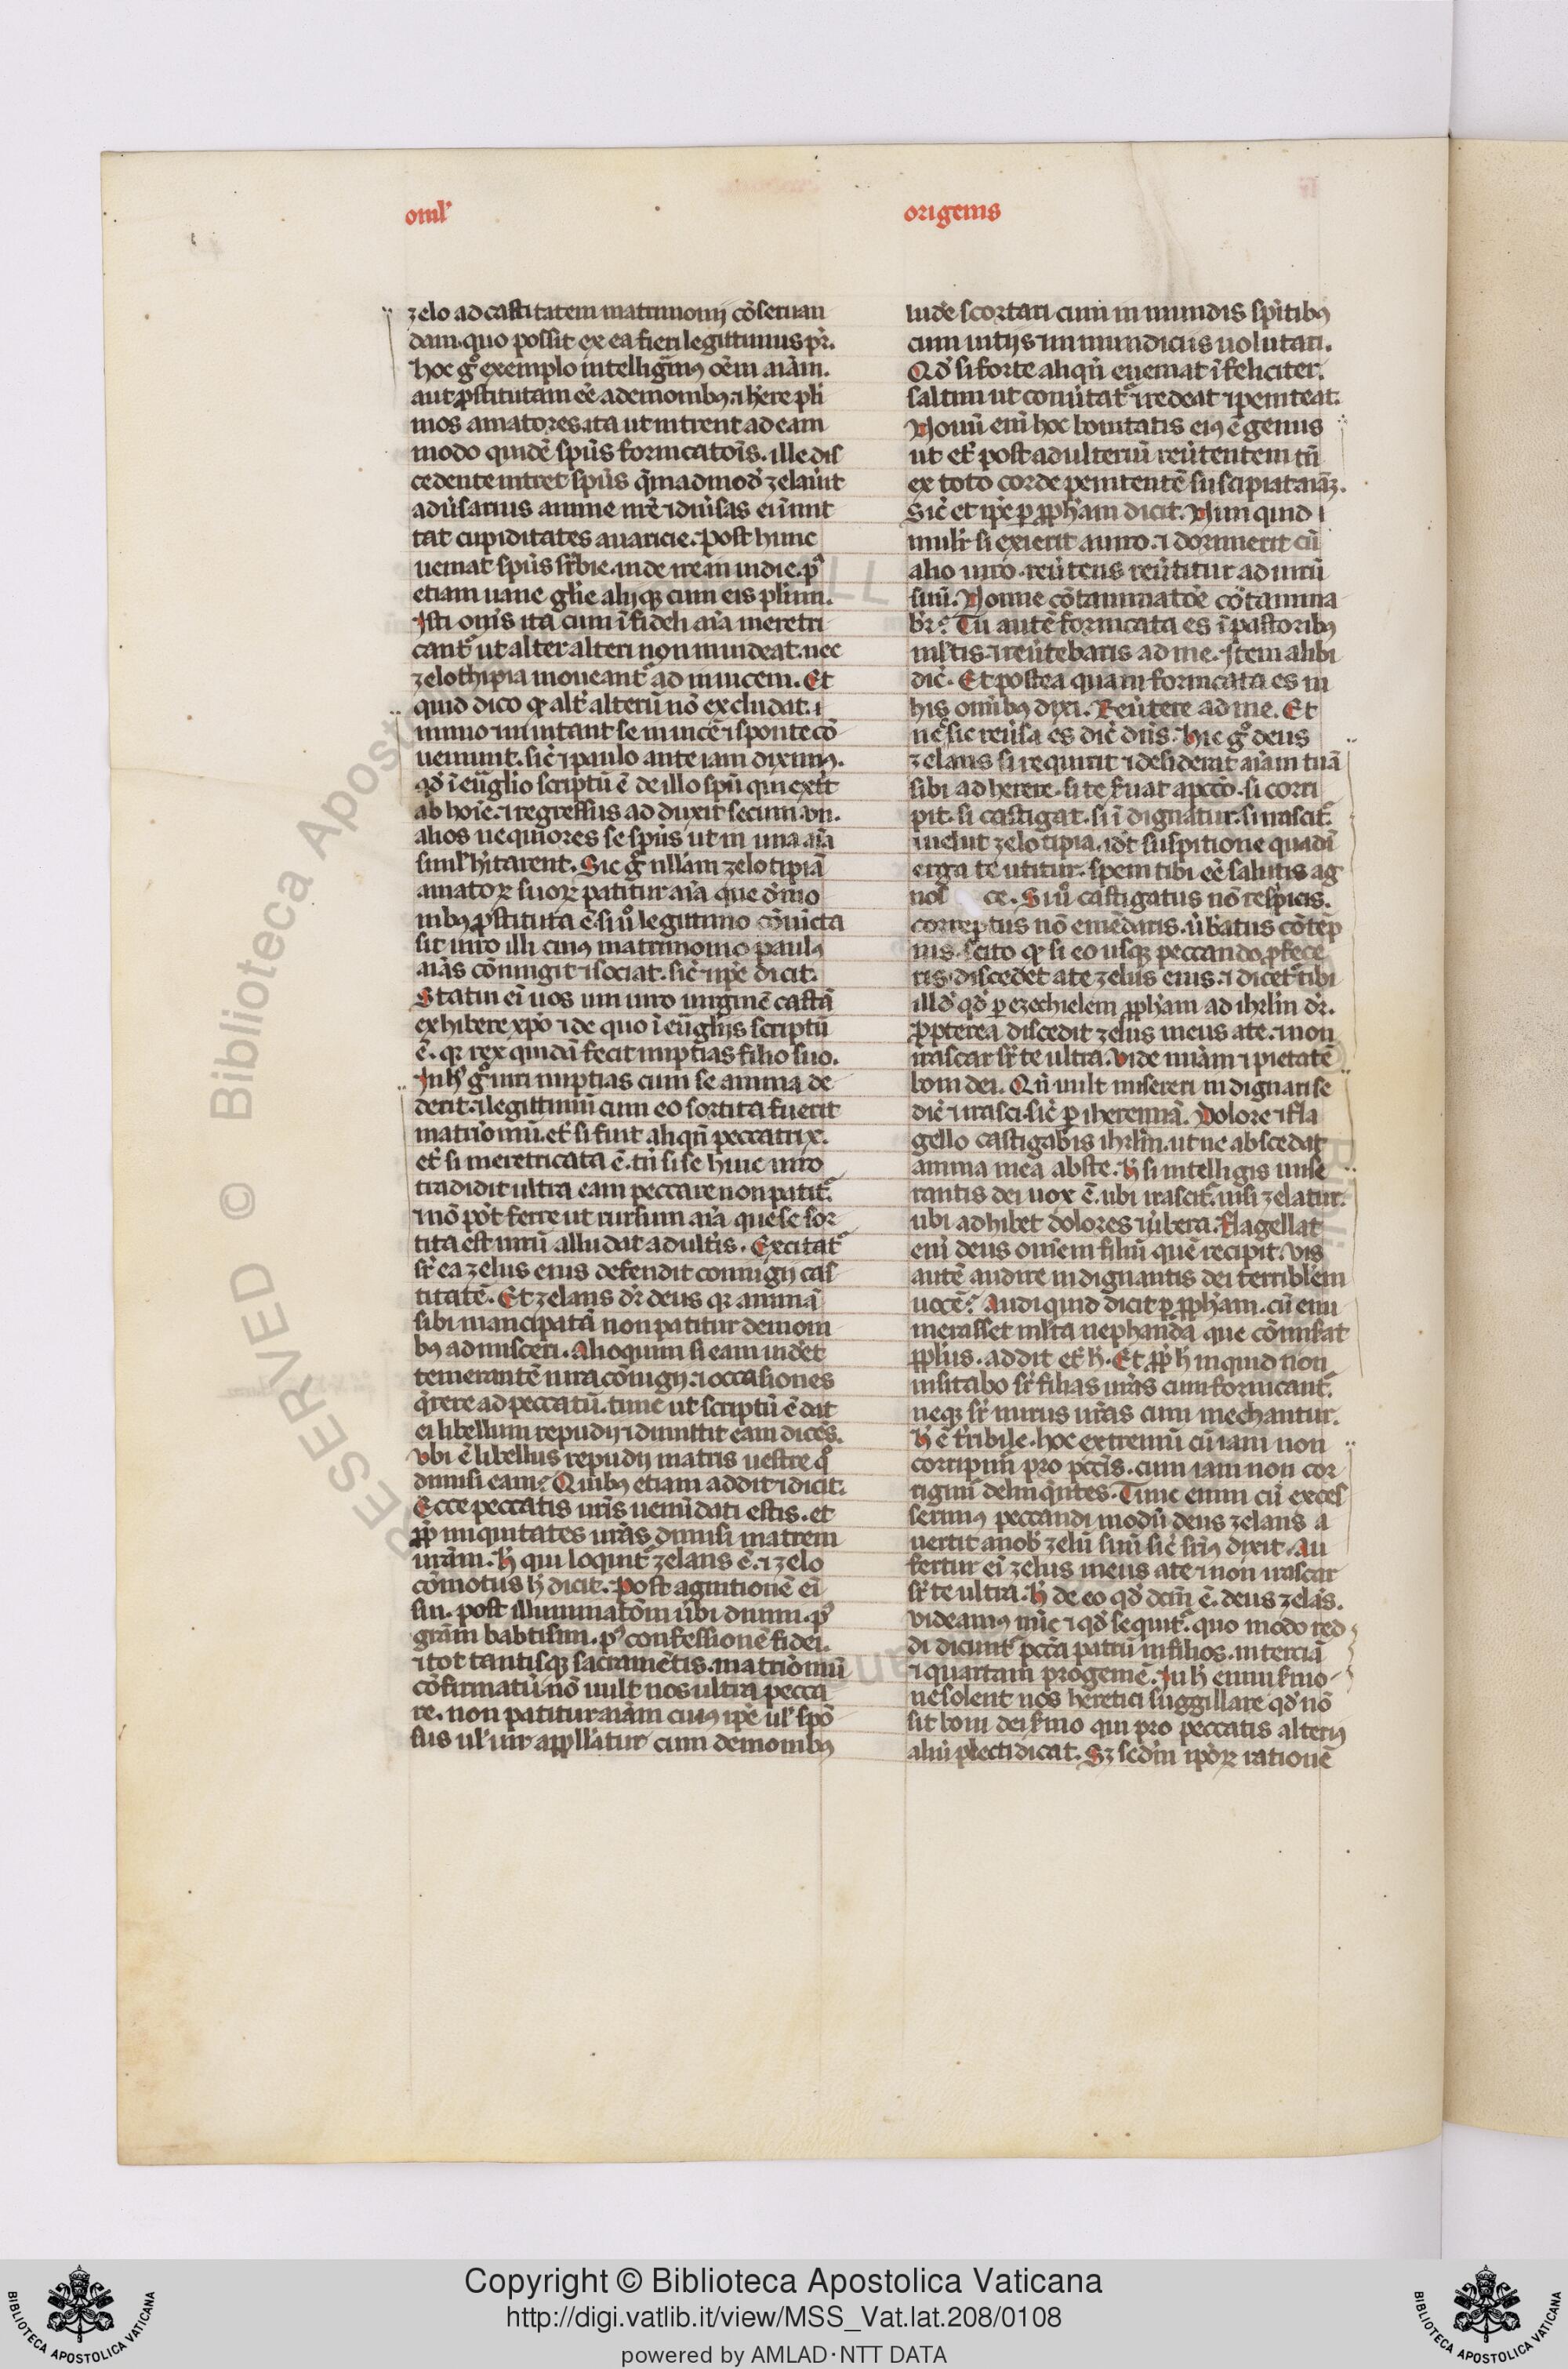 omł'
origenis
zelo ad castitatem matrimonij cōseruan
dam. quo possit ex ea fieri legittimus pr̄.
hoc gͦ exemplo intelligim᷒ oēm aīam.
aut ꝓstitutam eē a demonib᷒ ⁊ hēre pli
mos amatores ita ut intrent ad eam
modo quidē spūs fornicatōis. ille dis
cedente intret spūs q̄madmod̓ zelauit
adūsarius anime nrē ⁊ diūsas ei īmit
tat cupiditates auaricie. Post hunc
ueniat spūs sr̄bie. inde ire. inuidie. p᷒
etiam uane gl̄ie alijqꝫ cum eis plimi.
Isti om̄s ita cum īfideli aīa meretri
cant᷑ ut alter alteri non inuideat. nec
zelothipia moueant᷑ ad inuicem. Et
quid dico ꝙ alt̄ alterū nō excludat. ⁊
immo inuitant se inuicē ⁊ sponte cō
ueniunt. sic̄ ⁊ paulo ante iam dixim᷒.
qd̓ ī euglio scriptū ē de illo spū qui exīt
ab hoīe. ⁊ regressus adduxit secum .vii.
alios nequiores se spūs ut in una aīa
siml̓ hītarent. Sic gͦ nullam zelotipiā
amatoꝝ suoꝝ patitur aīa que demo
nib᷒ ꝓstituta ē. si uͦ legittimo cōiūcta
sit uiro illi cui᷒ matrimonio paul᷒
aīas cōiungit ⁊ sociat. sic̄ ⁊ ip̄e dicit.
Statui ei uos uni uiro uirginē castā
exhibere xp̄o ⁊ de quo ī euglijs scriptū
ē. qꝛ rex quidā fecit nuptias filio suo.
In h̄ gͦ uiri nuptias cum se anima de
derit. ⁊ legittimū cum eo sortita fuerit
matrīoniū. et̄ si fuit aliqn̄ peccatrix.
et̄ si meretricata ē. tn̄ si se huic uiro
tradidit ultra eam peccare non patit᷑.
⁊ nō pōt ferre ut rursum aīa que se sor
tita est uirū alludat adultis. Excitat᷑
sr̄ ea zelus eius defendit coniugij cas
titatē. Et zelans dr̄ deus qꝛ animā
sibi mancipatā non patitur demoni
b᷒ admisceri. Alioquin si eam uidet
temerantē iura cōiugij. ⁊ occasiones
q̄rere ad peccatū. tunc ut scriptū ē dat
ei libellum repudij ⁊ dimittit eam dicēs.
Vbi ē libellus repudij matris uestre qͦ
dimisi eam? Quib᷒ etiam addit ⁊ dicit.
Ecce peccatis uris uenūdati estis. et
ꝓp̄ iniquitates uras dimisi matrem
uram. h̄ qui loquit᷑ zelans ē. ⁊ zelo
cōmotus h̄ dicit. Post agnitionē ei
sui. post illuminatōm ūbi diuini. p᷒
gram babtismi. p᷒ confessionē fidei.
⁊ tot tantisqꝫ sacramētis. matrīoniū
cōfirmatū. nō uult nos ultra pecca
re. non patitur aīam cui᷒ ip̄e ul̓ spō
sus ul̓ uir appll̄atur cum demonib᷒
lude scortari cum inmundis sp̄itib᷒
cum uitijs ⁊ inmundicijs uolutari.
Qd̓ si forte aliqn̄ eueniat īfeliciter.
saltim ut conūtat᷑ ⁊ redeat ⁊ peniteat.
Nouū eni hoc bonitatis ei᷒ ē genus
ut et̄ post adulteriū reūtentem tn̄
ex toto corde penitentē suscipiat aīaꝫ.
Sic̄ et ip̄e ꝑ ꝓph̄am dicit. Nunquid
mulr̄ si exierit a uiro. ⁊ dormierit cū
alio uiro. reūtens reūtitur ad uirū
suū. Nonne cōtaminatōe cōtamina
br̄? Tu autē fornicata es ī pastorib᷒
ml̓tis. ⁊ reūtebaris ad me. Item alibi
dic̄. Et postea quam fornicata es in
his om̄ib᷒ dixi. Reūtere ad me. Et
nec̄ sic reūsa es dic̄ dn̄s. hic gͦ deus
zelans si requirit ⁊ desiderat aīam tuā
sibi adherere. si te suat a pccō. si corri
pit. si castigat. si īdignatur. si irascit᷑
⁊ uelut zelotipia. id̓t suspitione quadā
erga te utitur. spem tibi eē salutis ag
nos ce. Si uͦ castigatus nō respicis.
correptus nō emēdaris. ūbatus cōtēp
nis. scito ꝙ si eo usqꝫ peccando ꝓfece
ris. discedet a te zelus eius. ⁊ dicet᷑ tibi
illd̓ qd̓ ꝑ ezechielem ꝓph̄am ad ihrlm̄ dr̄.
ꝓpterea discedit zelus meus a te. ⁊ non
irascar sr̄ te ultra. Vide mīam ⁊ pietatē
boni dei. Qn̄ uult misereri indignari se
dic̄ ⁊ irasci. sic̄ ꝑ iheremiā. Dolore ⁊ fla
gello castigabis ihrlm̄. ut ne abscedat
anima mea abs te. h̄ si intelligis mise
rantis dei uox ē. ubi irascit᷑. ubi zelatur.
ubi adhibet dolores ⁊ ūbera. flagellat
eni deus omnem filiū quē recipit. Vis
autē audire indignantis dei terriblem
uocē? Audi quid dicit ꝑ ꝓph̄am. cū enu
merasset ml̓ta nephanda que cōmiserat
ppl̄us. addit et̄ h̄. Et ꝓp̄ h̄ inquid non
uisitabo sr̄ filias uras cum fornicant᷑.
neqꝫ sr̄ nurus uras cum mechantur.
h̄ ē tr̄ribile. hoc extremū cū iam non
corripim̄ pro pcc̄is. cum iam non cor
rigim̄ delinq̄ntes. Tunc enim cū exces
serim᷒ peccandi modū deus zelans a
uertit a nob̓ zelū suū sic̄ suꝑi᷒ dixit. Au
fertur ei zelus meus a te ⁊ non irascar
sr̄ te ultra. h̄ de eo qd̓ dcm̄ ē. deus zelās.
Videam᷒ nūc ⁊ qd̓ sequit᷑. quo modo red
di dicunt᷑ pccā patrū in filios. in terciā
⁊ quartam progeniē. In h̄ enim smo
ne solent nos heretici suggillare qd̓ nō
sit boni dei smo qui pro peccatis alteri᷒
aliū plecti dicat. Sꝫ scd̓m ip̄oꝝ rationē
Copyright © Biblioteca Apostolica Vaticana
http://digi.vatlib.it/view/MSS_Vat.lat.208/0108
powered by AMLAD·NTT DATA